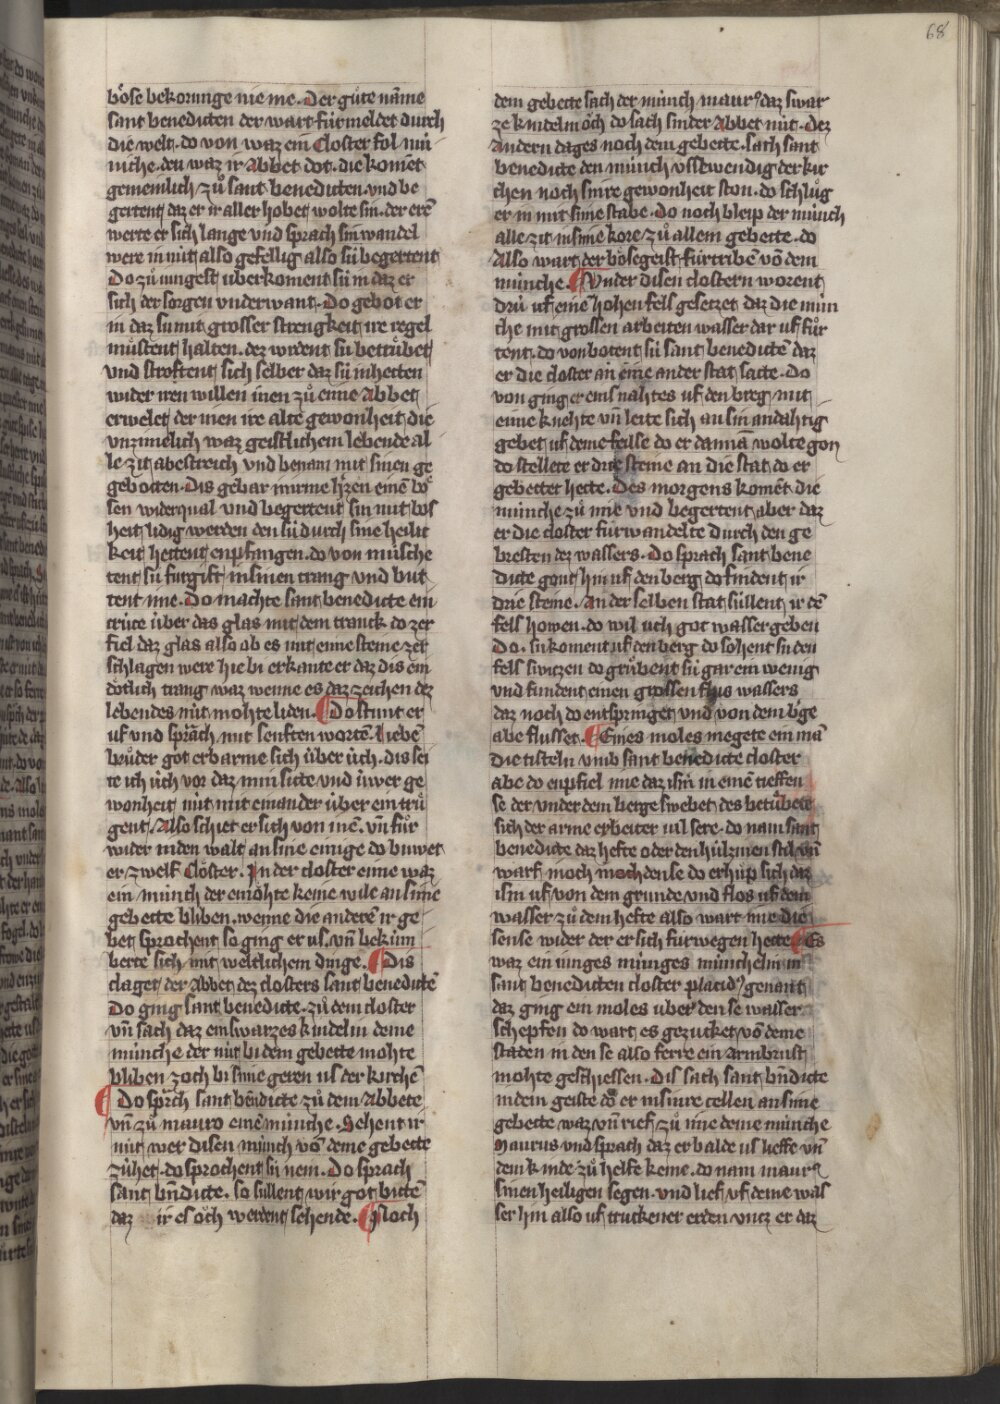 68
bo̊se bekorunge nie me. Der gůte nāme
sant benedicten der wart fúrmeldet durch
die welt. do von waz ein Closter fol mú
niche. den waz ir Abbet dot. die koment
gemeinlich zů sant benedicten. vnd be
gertent daz er ir aller hobet wolte sin. der erē
werte er sich lange vnd sprach sin wandel
were in nút also gefellig also sú begertent
Do zů iungest uberkoment sú in daz er
sich der sorgen vnderwant. Do gebot er
in daz sú mit grosser strengkeit ire regel
můstent halten. dez wrdent sú betru̍bet
vnd stroftent sich selber daz sú in hetten
wider iren willen inen zů eime Abbet
erwelet der inen ire alte gewonheit die
vnzimelich waz geistlichem lebende al
le zit abestreich vnd benam mit sinen ge
gebotten. Dis gebar in irme h̄zen einē bo̍
sen widerqual vnd begertent sin mit bos
heit lidig werden den sú durch sine heilik
keit hettent enpfangen. do von músche
tent sú furgift in sinen trang vnd but
tent ime. Do machte sant benedicte ein
crúce úber das glas mit dem tranck. do zer
fiel daz glas also ob es mit eime steine zer
schlagen were hie bi erkante er daz dis ein
dőtlich trang waz wenne es daz zeichen dez
lebendes nút mohte liden. Do stunt er
uf vnd sprach mit senften worten. lieben
brůder got erbarme sich úber úch. dis sei
te ich úch vor daz min sitte vnd úwer ge
wonheit nút mit einander úber ein trů
gent. Also schiet er sich von inē. vn̄ fůr
wider in den walt an sine einige do buwet
er zwelf Clőster. In der closter eime waz
ein múnch der enmőhte keine wile an sime
gebette bliben. wenne die anderē ir ge
bet sprochent so ging er us. vn̄ bekúm
berte sich mit weltlichem dinge. Dis
claget der Abbet dez closters sant benedictē
Do ging sant benedicte. zů dem closter
vn̄ sach daz ein swarzes kindelin deme
múnche der nút bi dem gebette mohte
bliben zoch bi sime geren us der kirchē
Do sprach sant bn̄dicte zů dem Abbete
vn̄ zů mauro eime múnche. Sehent ir
nút wer disen múnch vō deme gebette
zúhet. do sprochent sú nein. Do sprach
sant bn̄dicte. so súllent wir got bitten
daz ir es őch werdent sehende. Noch
dem gebette sach der múnch maurꝰ daz swar
ze kindelin őch do sach sin der Abbet nút. Dez
Andern dages noch dem gebette. sach sant
benedicte den múnch vssewendig der kir
chen noch sinre gewonheit ston. do schlůg
er in mit sime stabe. Do noch bleip der múnch
alle zit in sime kore zů allem gebette. do
Also wart der bősegeist fúrtribē vō dem
múnche. Under disen clostern worent
drú uf eime hohen fels gesetzet daz die mún
che mit grossen arbeiten wasser dar uf fůr
tent. do von botent sú sant benedictē daz
er die closter an eine ander stat satte. Do
von ging er eins nahtes uf den breg mit
eime knehte vn̄ leite sich an sin andahtig
gebet uf deme feilse do er dannā wolte gon
do stellete er drie steine an die stat do er
gebettet hette. Des morgens komēt die
múnche zů ime vnd begertent aber daz
er die closter fúrwandelte durch den ge
bresten dez wassers. Do sprach sant bene
dicte gont hin uf den berg do findent ir
drie steine. An der selben stat súllent ir dē
fels howen. do wil úch got wasser geben
Do. sú koment uf den berg do sohent sú den
fels switzen do grůbent sú gar ein wenig
vnd fundent einen grossen flus wassers
daz noch do entspringet vnd von dem b̄ge
abe flusset. Eines moles megete ein mā
die tisteln vmb sant benedicte closter
abe do enpfiel ime daz isin in einē tieffen
se der vnder dem berge swebet des betrůbete
sich der arme erbeiter vil sere. do nam sant
benedicte daz hefte oder den húlzinen stil vn̄
warf in noch dense do erhůp sich daz
isin uf von dem grunde vnd flos uf dem
wasser zů dem hefte also wart ime die
sense wider der er sich fúrwegen hette. Es
waz ein iunges múnges múnchelin in
sant benedicten closter placidꝰ genant
daz ging eins moles uber den se wasser
schepfen do wart es gezucket vō deme
staden in den se also ferre ein Armbrust
mohte geschiessen. Dis sach sant bn̄dicte
in dem geiste do er in sinre cellen an sime
gebette waz vn̄ rief zů ime deme múnche
Maurus vnd sprach daz er balde us lieffe vn̄
dem kinde zů helfe keme. do nam maurꝰ
sinen heiligen segen. vnd lief vf deme was
ser hin also uf truckener erden vntz er daz